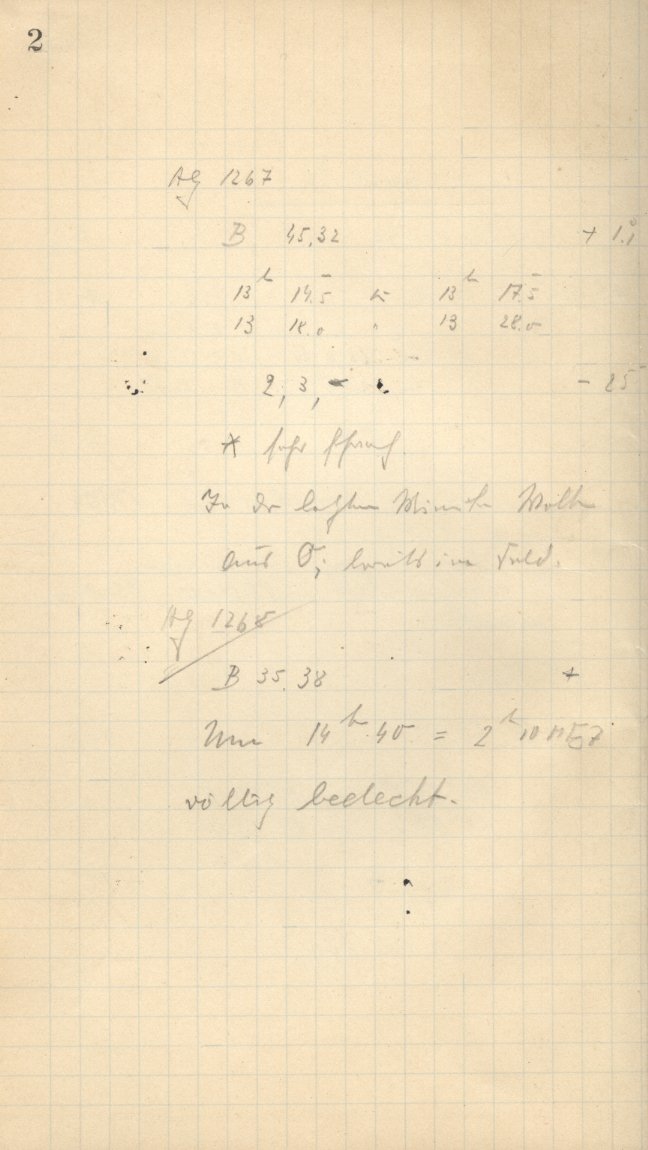 2
AG 1267
B 45,32 + 1.i
13h 14.5 13h 17.5
13 18.0 " 13 28.0
2, 3, - 25
* sehr schwach
In der letzten Minute Wolke
aus O; bereits im Feld.
AG 1268
B 35.38 +
Um 14h 40 = 2h 10 MEZ
völlig bedeckt.